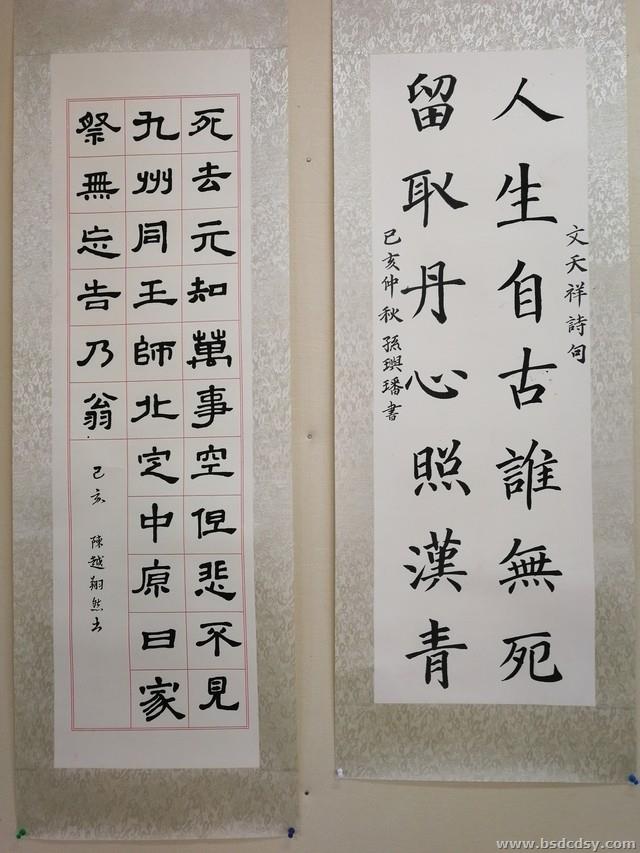 文天祥詩句
人生自古誰無死
留取丹心照漢青
己亥仲秋 孫璵璠書
死去元知萬事空但悲不見
九州同王師北定中原日家
祭無忘告乃翁
己亥 陳越翔然书
www.bsdcdsy.com